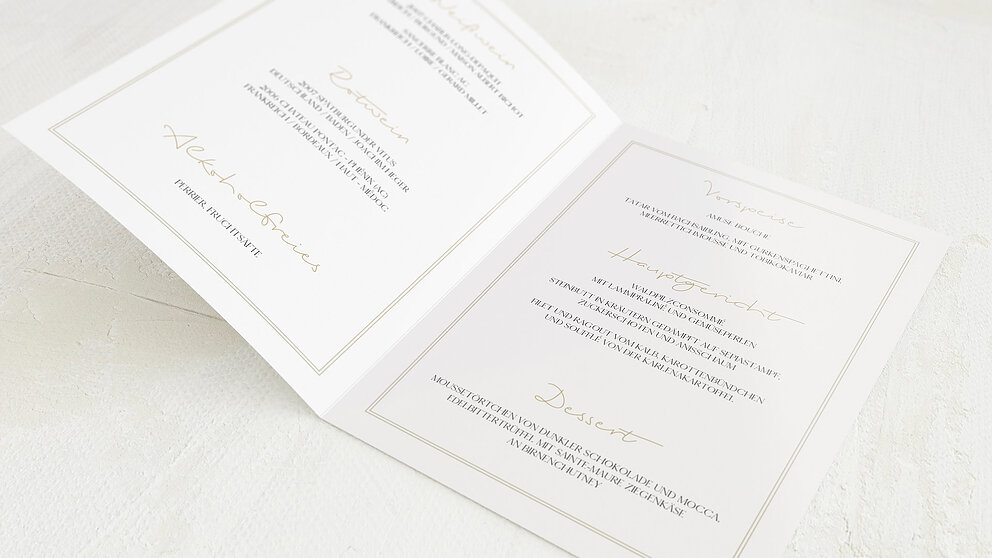 Weißwein
FRANKREICH / BURGUND / MAISON ALBERT BICHOT
SANCERRE BLANC AC
FRANKREICH / LOIRE / GERARD MILLET
Rotwein
2007 SPÄTBURGUNDER VITUS
DEUTSCHLAND / BADEN / JOACHIM HEGER
2006 CHATEAU PONTAC - PHENIX (AC)
FRANKREICH / BORDEAUX / HAUT - MEDOC
Alkoholfreies
PERRIER, FRUCHTSÄFTE
Vorspeise
AMUSE BOUCHE
TATAR VOM BACHSAIBLING, MIT GURKENSPAGHETTINI,
MEERRETTICHMOUSSE UND TOBIKOKAVIAR
Hauptgericht
WALDPILZCONSOMMÉ
MIT LAMMPRALINE UND GEMÜSEPERLEN
STEINBUTT IN KRÄUTERN GEDÄMPFT AUF SEPIASTAMPF,
ZUCKERSCHOTEN UND ANISSCHAUM
FILET UND RAGOUT VOM KALB, KAROTTENBÜNDCHEN
UND SOUFFLÉ VON DER KARLENAKARTOFFEL
Dessert
MOUSSETÖRTCHEN VON DUNKLER SCHOKOLADE UND MOCCA,
EDELBITTERTRÜFFEL MIT SAINTE-MAURE ZIEGENKÄSE
AN BIRNENCHUTNEY